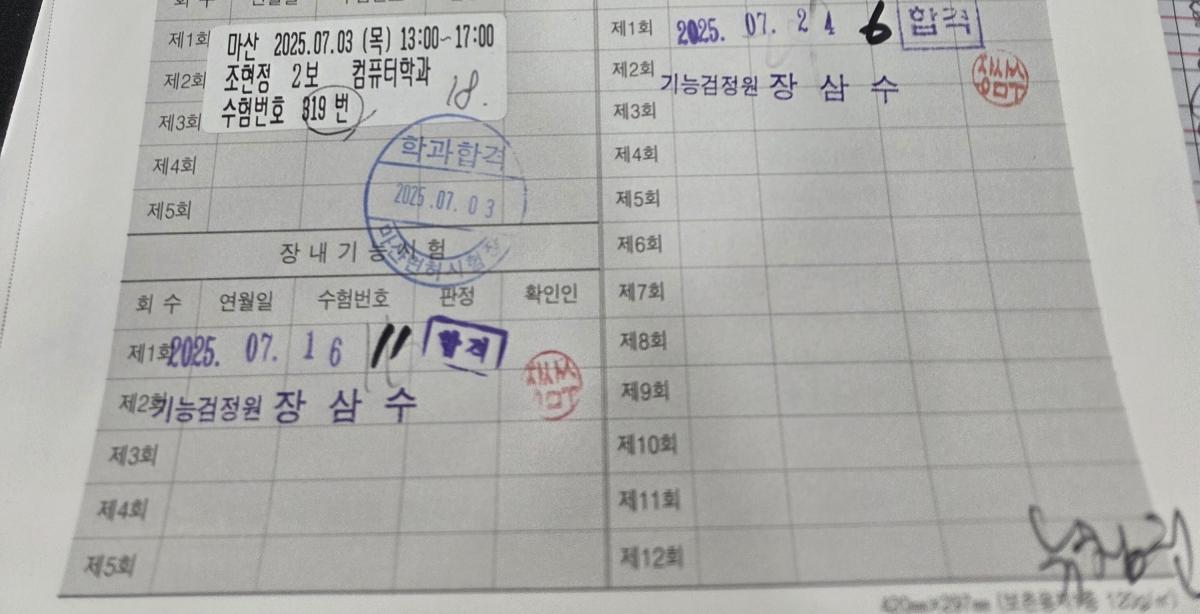 회 수 연월일
제1회
마산 2025.07.03 (목) 13:00~17:00
제2회
조현정 2보 컴퓨터학과
18.
제3회
수험번호 819 번
제4회
제5회
학과합격
2025.07.03
마산면허시험장
장내기능시험
회 수 연월일 수험번호 판정 확인인
제1회 2025. 07. 16 11 합격
제2회 기능검정원 장 삼 수
제3회
제4회
제5회
제1회 2025. 07. 24 6 합격
제2회 기능검정원 장 삼 수
제3회
제4회
제5회
제6회
제7회
제8회
제9회
제10회
제11회
제12회
420㎜×297㎜